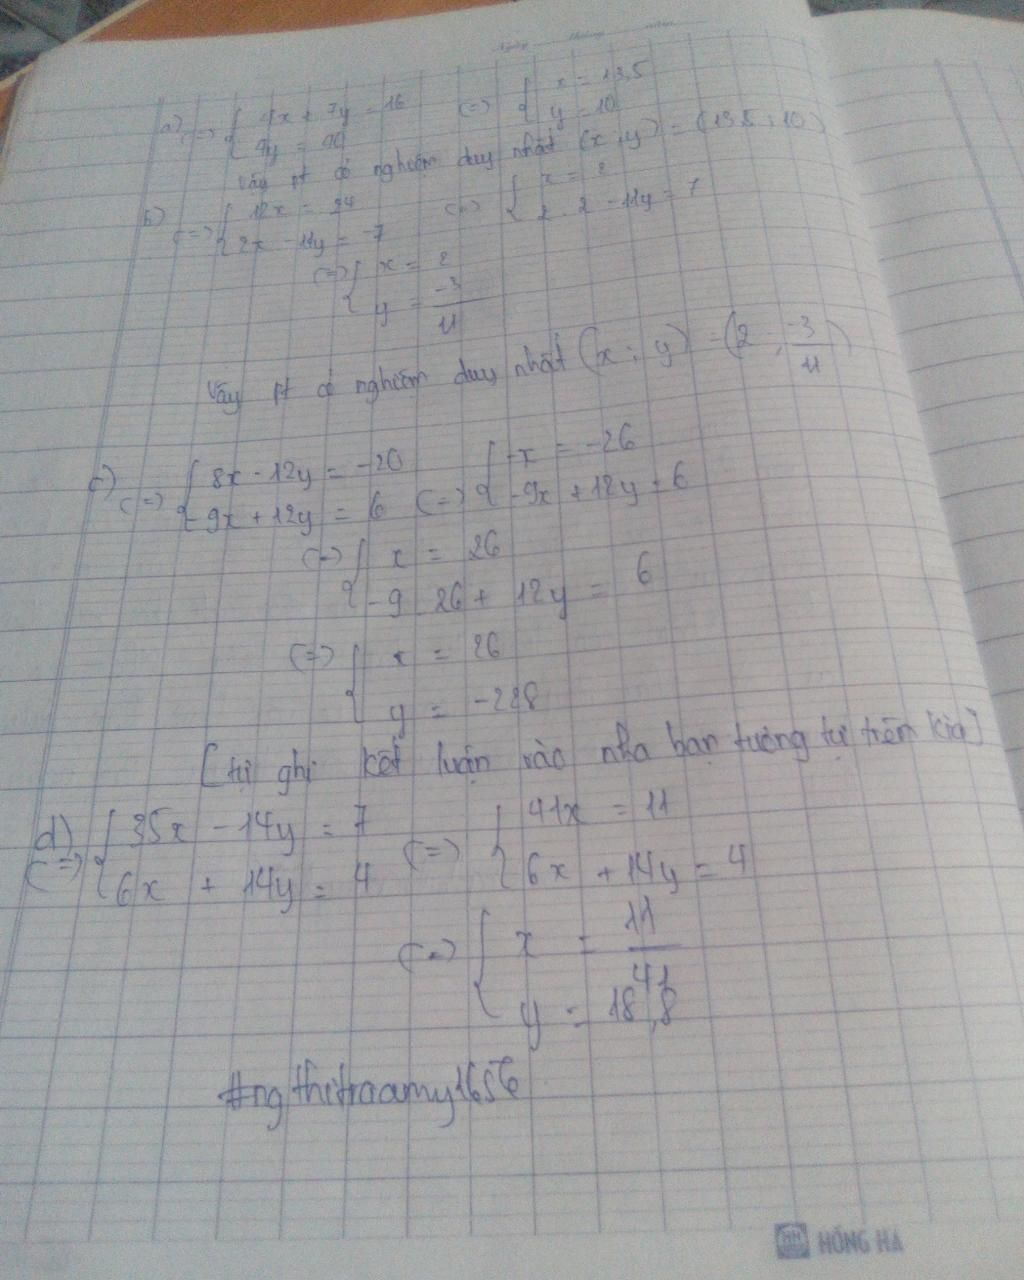 a) (=> { 4x + 7y = 16 (=) { x = 13,5
4y = 40 y = 10
Vậy pt có nghiệm duy nhất (x ; y) = (13,5 ; 10)
b) (=> { 12x = 24 (=) { x = 2
2x - 11y = -7 2 . 2 - 11y = 7
(=> { x = 2
y = -3/11
Vậy pt có nghiệm duy nhất (x ; y) = (2 ; -3/11)
c) (=> { 8x - 12y = -20 (=) { -x = -26
-9x + 12y = 6 -9x + 12y = 6
(=) { x = 26
-9 26 + 12y = 6
(=) { x = 26
y = -228
[tự ghi kết luận vào nha bạn tương tự trên kia]
d) (=> { 35x - 14y = 7 (=) { 41x = 11
6x + 14y = 4 6x + 14y = 4
(=) { x = 11/41
y = 18,8
#ngthitraamy1656
HỒNG HÀ